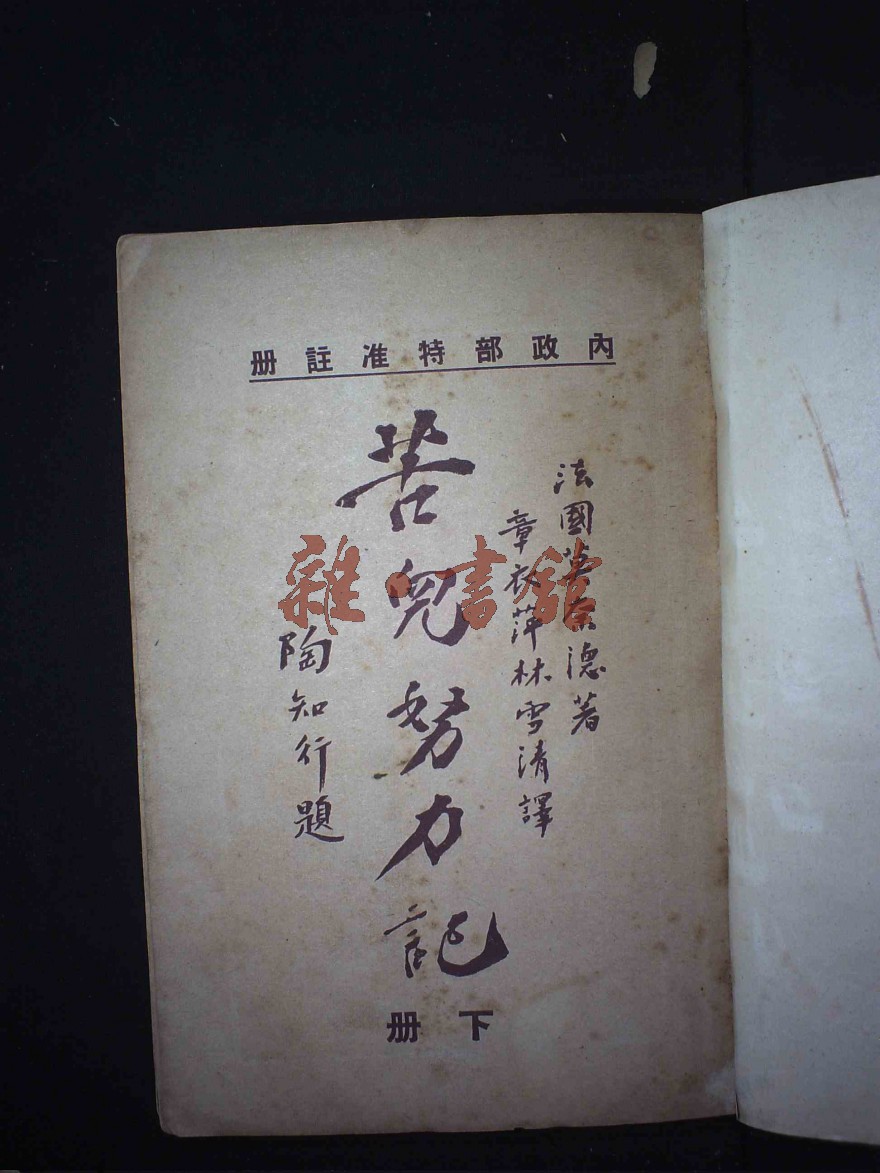 內政部特准註册
法國莫奈德著
章衣萍林雪清譯
苦兒努力記
陶知行題
下册
雜·書館